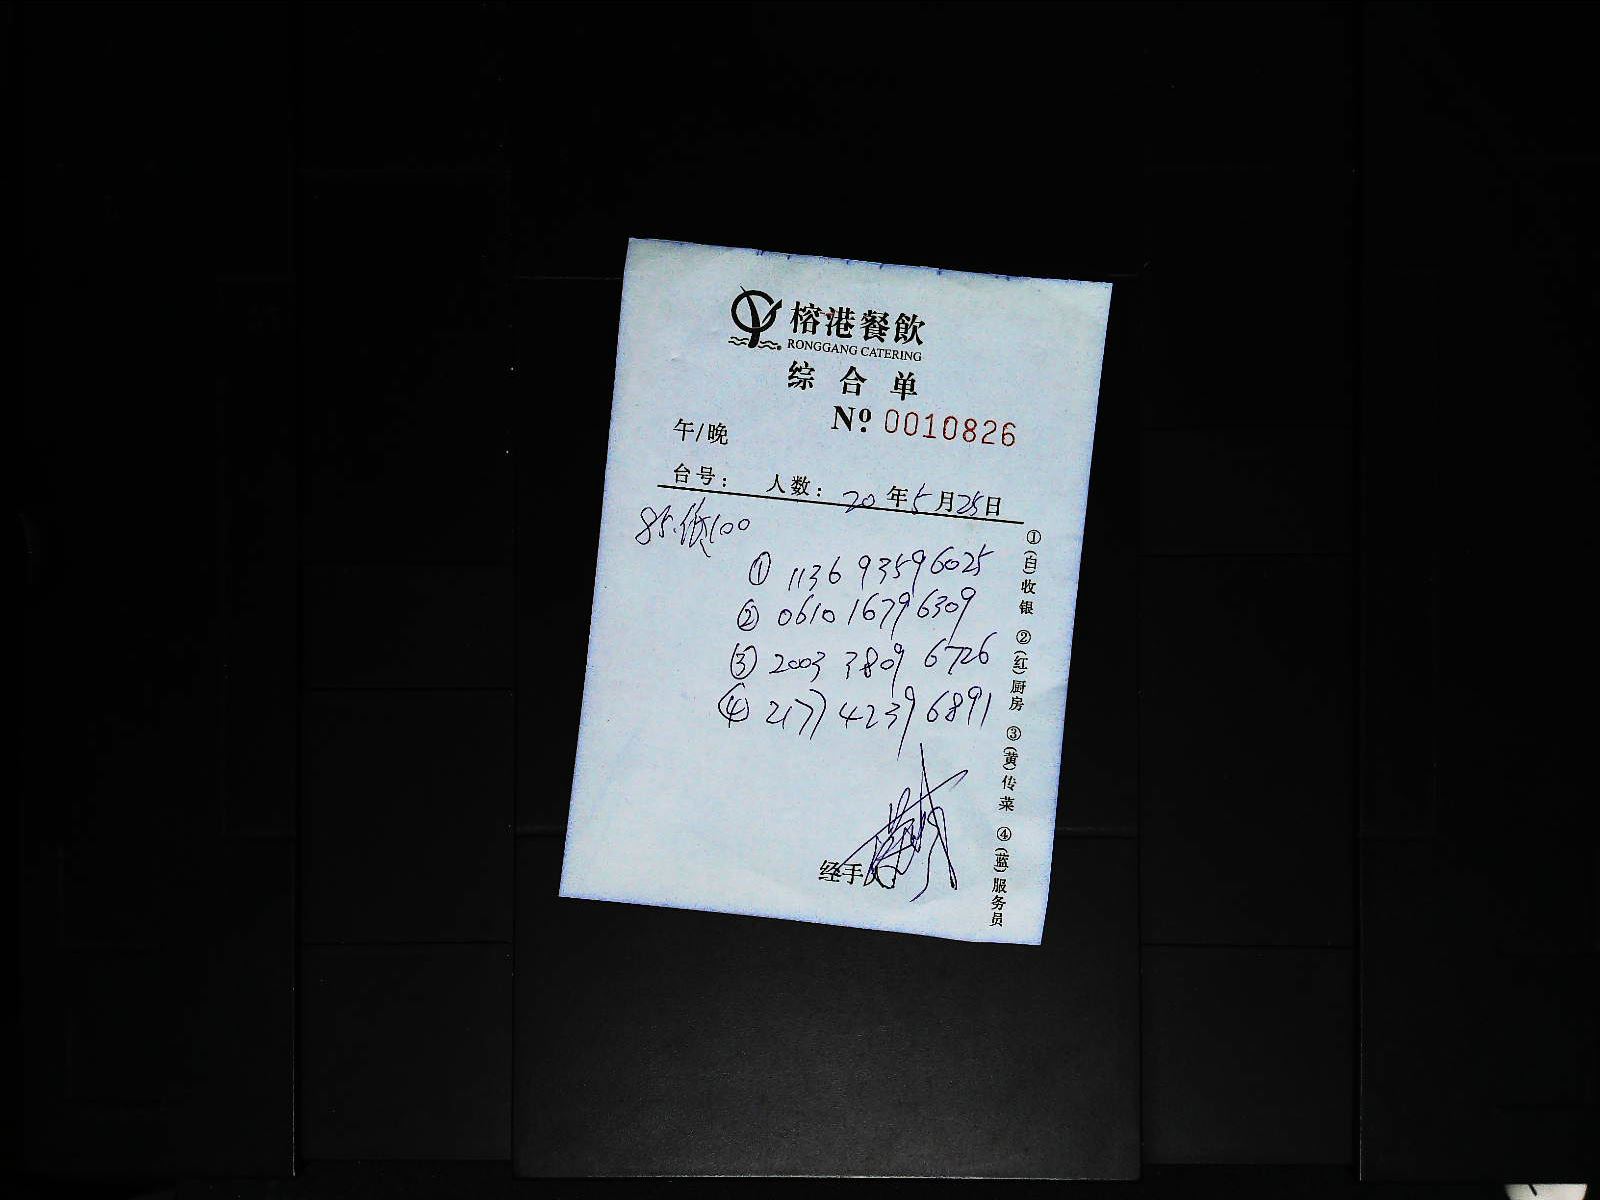 榕港餐飲
RONGGANG CATERING
综合单
Nº 0010826
午/晚
台号: 人数: 20 年 5 月 25 日
85.抵100
① 1136 9359 6025
② 0610 1679 6309
③ 2003 3809 6726
④ 2177 4239 6891
经手
①(白)收银 ②(红)厨房 ③(黄)传菜 ④(蓝)服务员